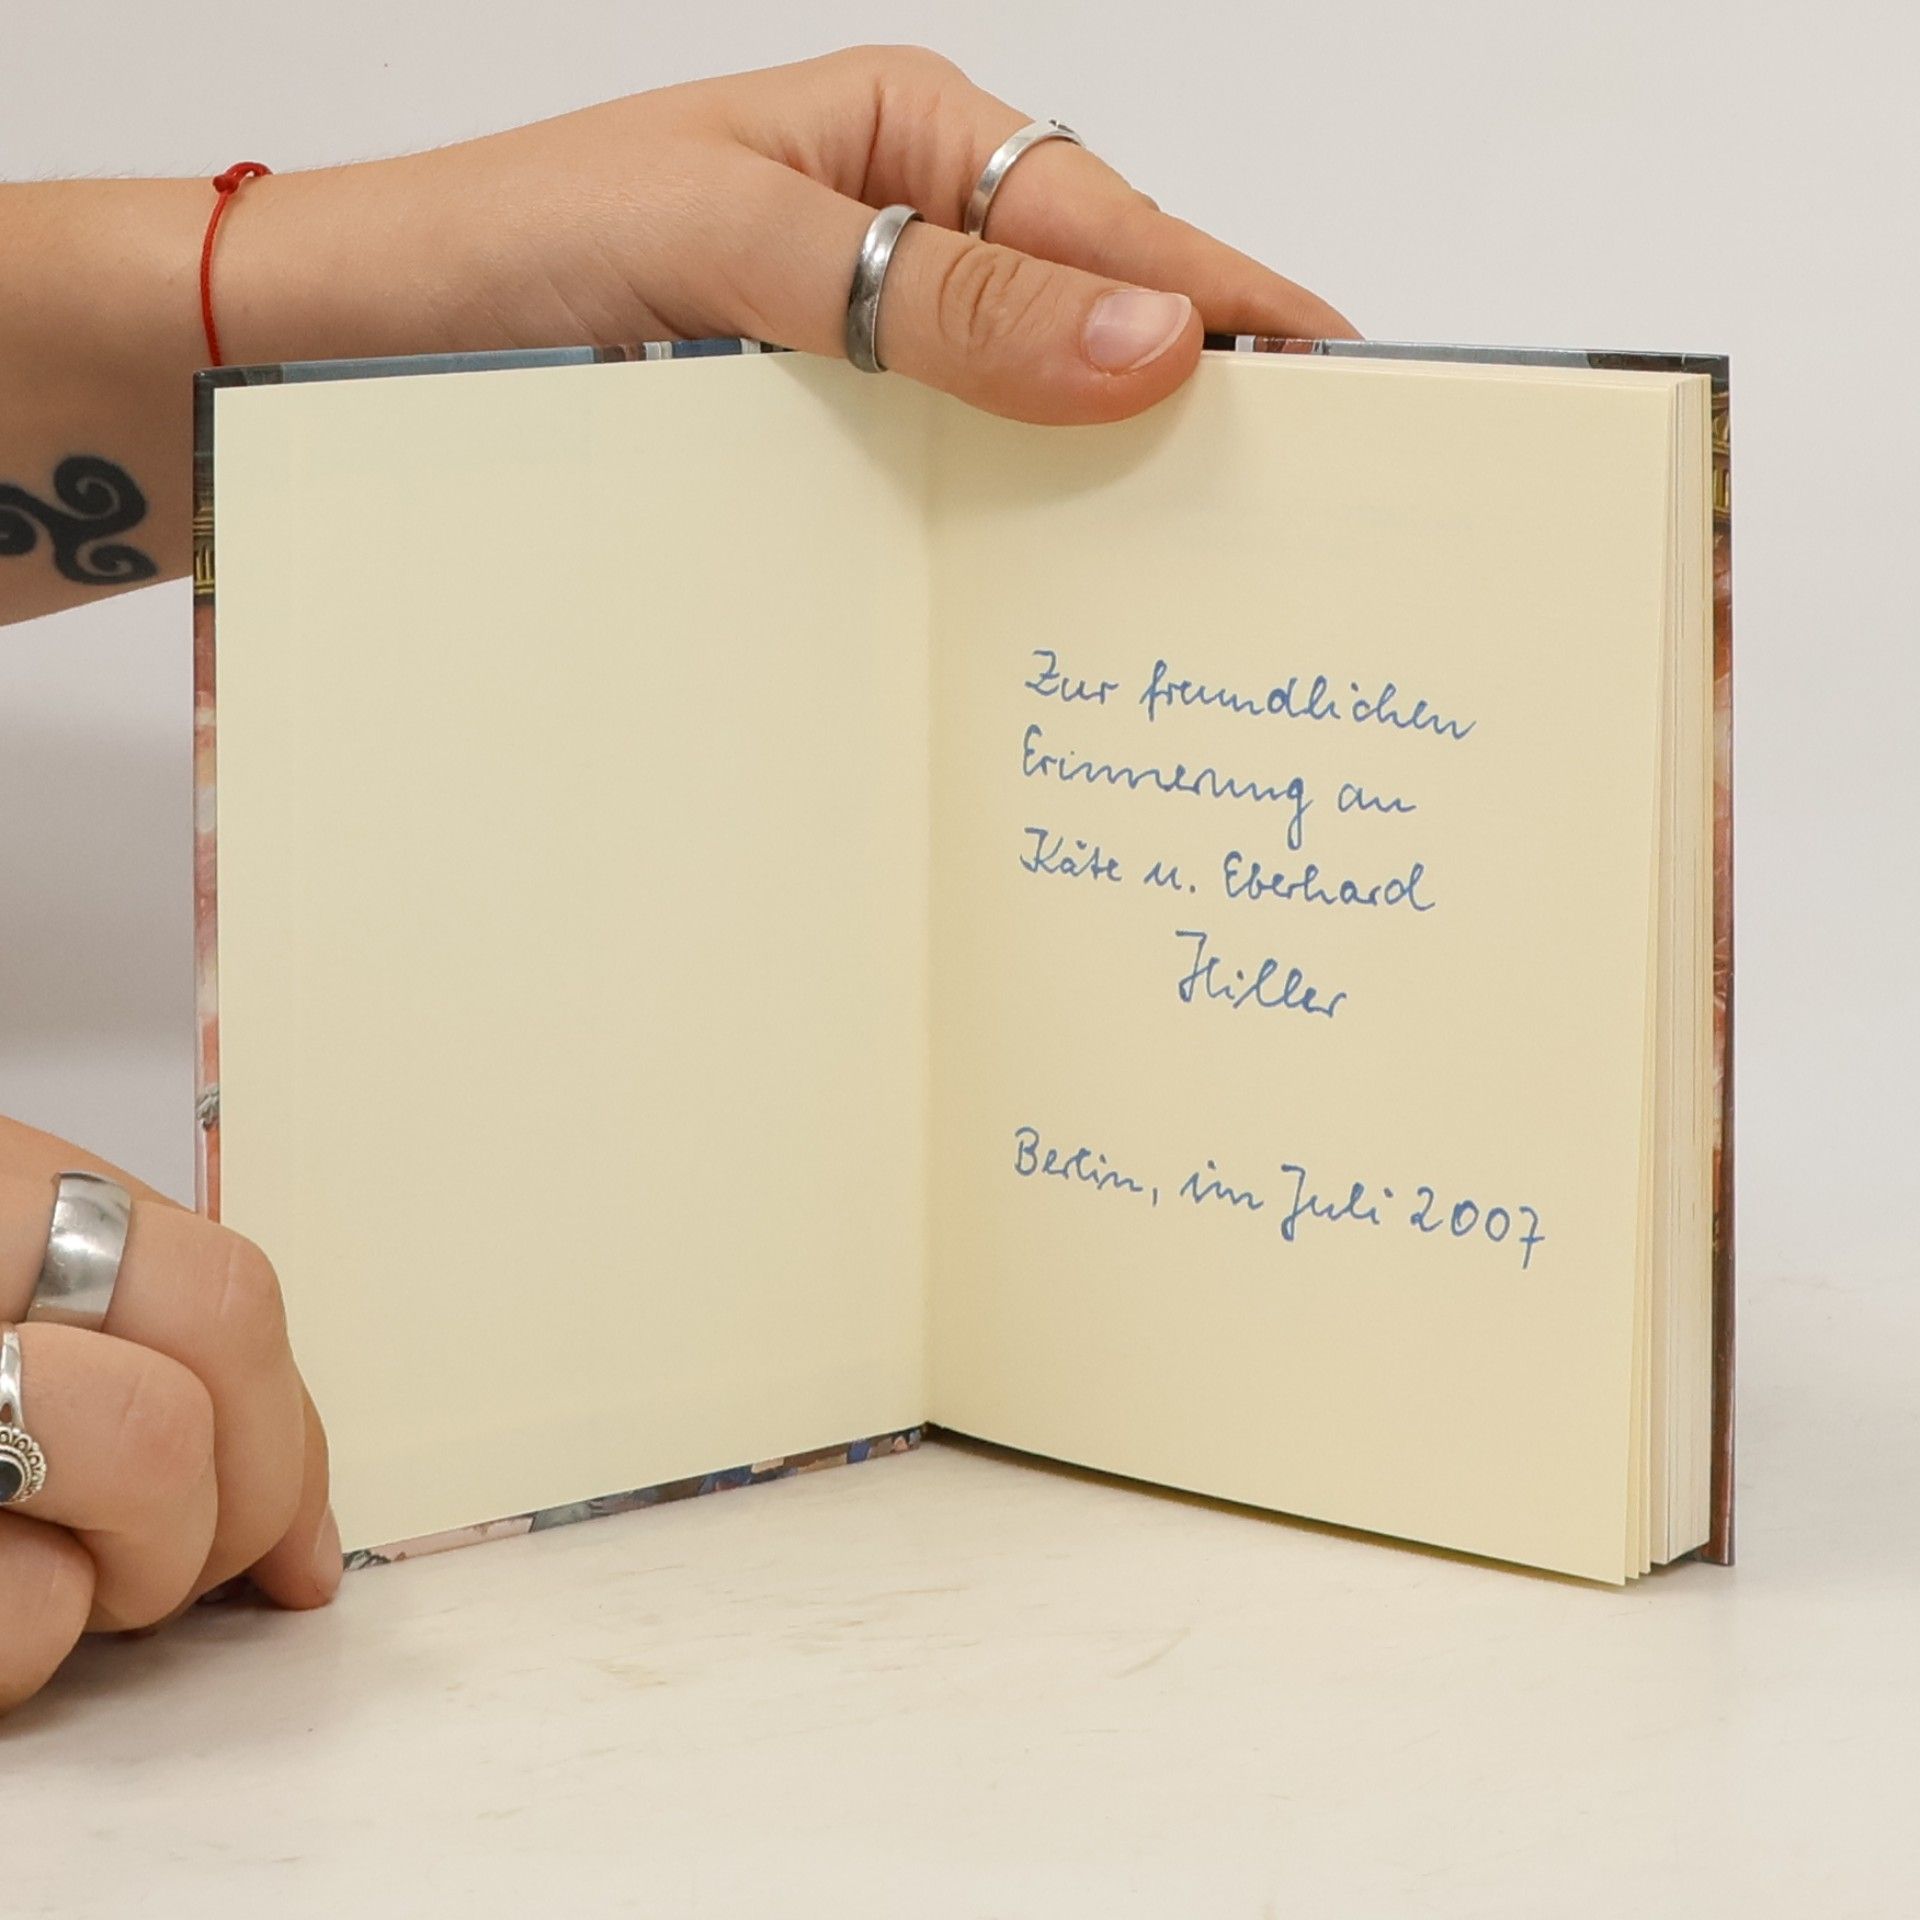 Zur freundlichen
Erinnerung an
Käte u. Eberhard
Hiller
Berlin, im Juli 2007